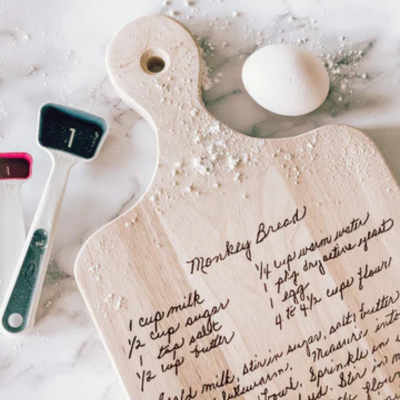 1
1
Monkey Bread
1 cup milk
1/2 cup sugar
1 tsp salt
1/2 cup butter
1/4 cup warm water
1 pkg dry active yeast
1 egg
4 to 4 1/2 cups flour
milk, stir in sugar, salt, butter
lukewarm. Measure into
bowl. Sprinkle in
Stir in
the flour